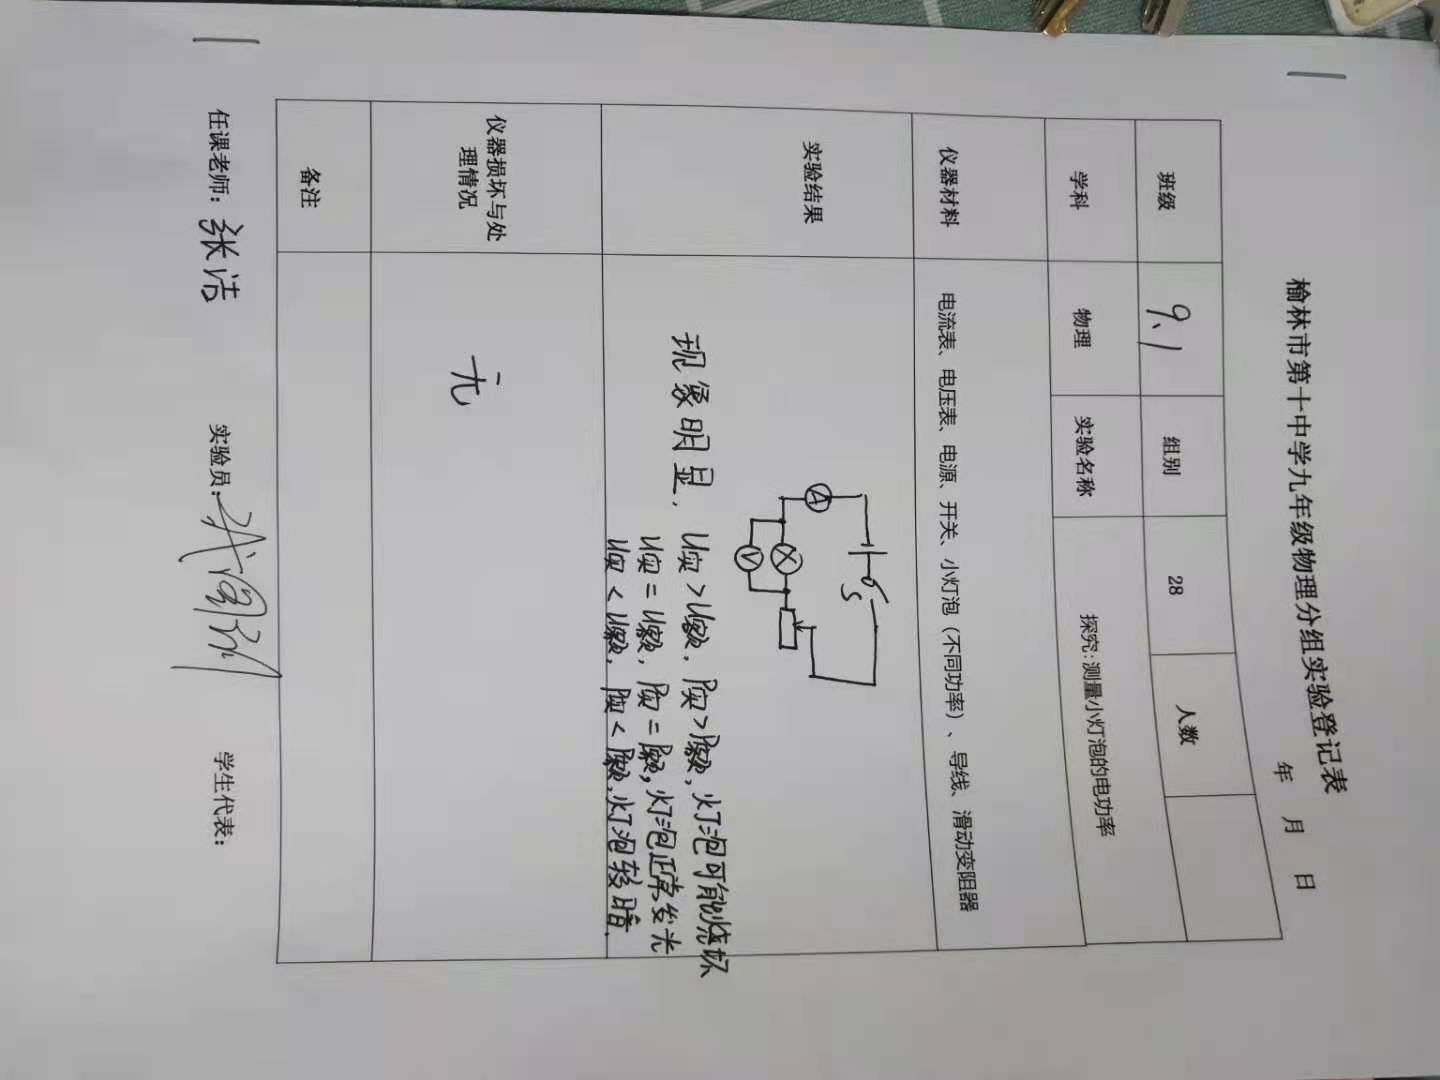 榆林市第十中学九年级物理分组实验登记表
年 月 日
班级 9.1 组别 28 人数
学科 物理 实验名称 探究:测量小灯泡的电功率
仪器材料 电流表、电压表、电源、开关、小灯泡（不同功率）、导线、滑动变阻器
实验结果
S
A
V
现象明显. U实>U额, P实>P额, 灯泡可能烧坏
U实=U额, P实=P额, 灯泡正常发光
U实<U额, P实<P额, 灯泡较暗.
仪器损坏与处
理情况
无
备注
任课老师: 张洁 实验员: 学生代表: